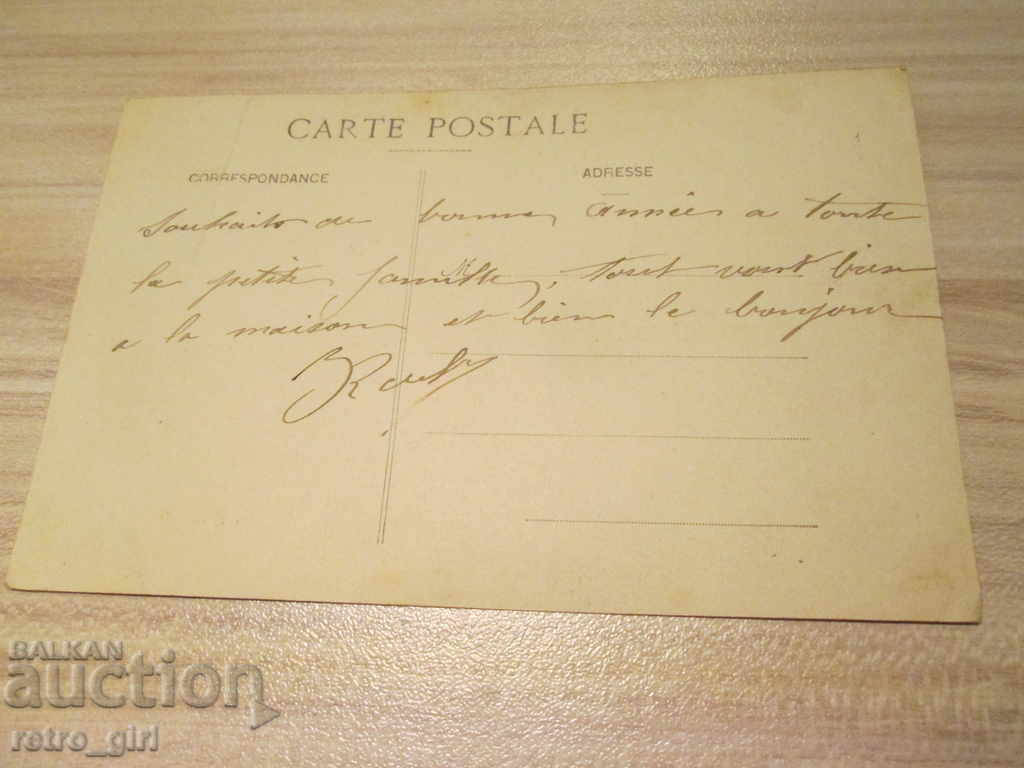 CARTE POSTALE
CORRESPONDANCE
ADRESSE
Souhaits de bonne Année a toute
la petite famille, tout vont bien
a la maison et bien le bonjour
BALKAN
auction
retro_girl